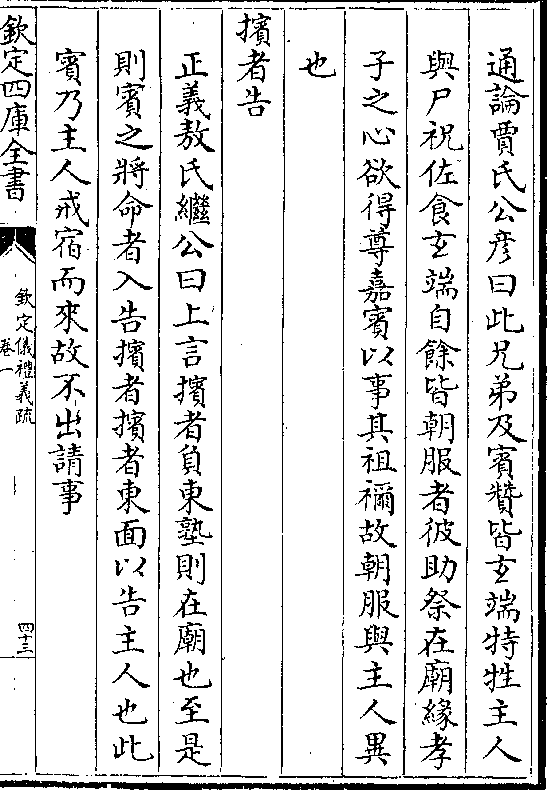 通論賈氏公彦曰此兄弟及賓贊皆玄端特牲主人
與尸祝佐食玄端自餘皆朝服者彼助祭在廟緣孝
子之心欲得尊嘉賓以事其祖禰故朝服與主人異
也
擯者告
正義敖氏繼公曰上言擯者負東塾則在廟也至是
則賓之將命者入告擯者擯者東面以告主人也此
賓乃主人戒宿而來故不出請事
欽定四庫全書
欽定儀禮義疏
卷一
四十三